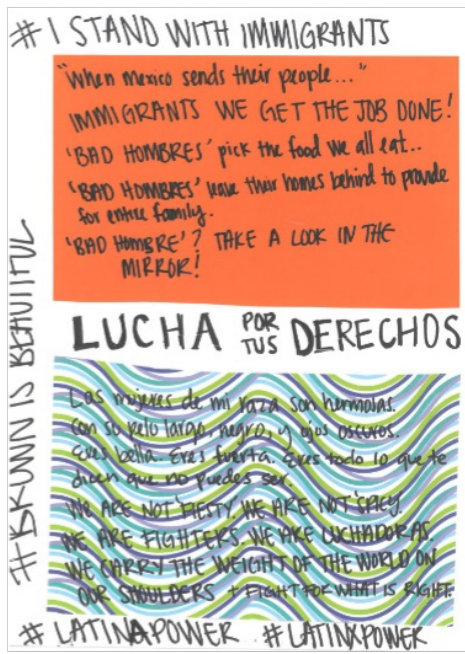 # I STAND WITH IMMIGRANTS
"When mexico sends their people..."
IMMIGRANTS WE GET THE JOB DONE!
'BAD HOMBRES' pick the food we all eat..
'BAD HOMBRES' leave their homes behind to provide
for entire family.
'BAD HOMBRE'? TAKE A LOOK IN THE
MIRROR!
#BROWN IS BEAUTIFUL
LUCHA POR TUS DERECHOS
Las mujeres de mi raza son hermosas.
Con su pelo largo, negro, y ojos oscuros.
Eres bella. Eres fuerta. Eres todo lo que te
dicen que no puedes ser.
WE ARE NOT FIESTY, WE ARE NOT SPICY.
WE ARE FIGHTERS, WE ARE LUCHADORAS.
WE CARRY THE WEIGHT OF THE WORLD ON
OUR SHOULDERS + FIGHT FOR WHAT IS RIGHT.
# LATINAPOWER # LATINXPOWER